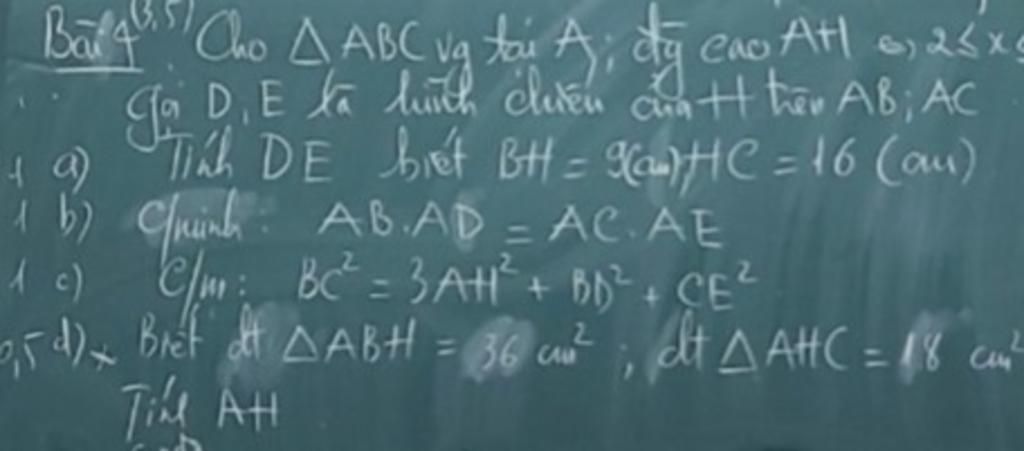 Bài 4 (3,5) Cho △ABC vg tại A; đg cao AH 2 ≤ x ≤
Gọi D, E là hình chiếu của H trên AB; AC
1 a) Tính DE biết BH = 9(cm), HC = 16 (cm)
1 b) C/minh: AB.AD = AC.AE
1 c) C/m: BC² = 3AH² + BD² + CE²
0,5 d) Biết dt △ABH = 36 cm²; dt △AHC = 18 cm²
Tính AH